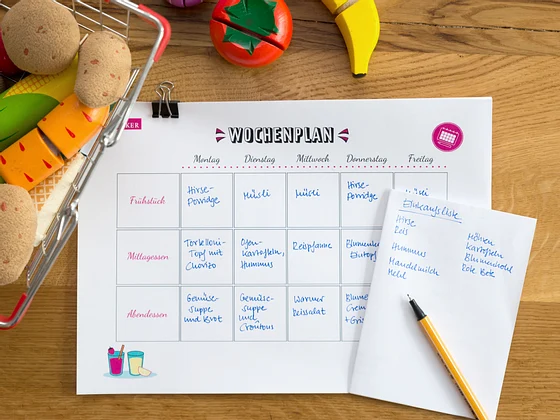 KER
WOCHENPLAN
Montag Dienstag Mittwoch Donnerstag Freitag
Frühstück
Hirse-
Porridge
Müsli
Müsli
Hirse-
Porridge
Müsli
Mittagessen
Tortelloni-
Topf mit
Chorizo
Ofen-
kartoffeln,
Hummus
Reispfanne
Blumenk
Eintopf
Abendessen
Gemüse-
suppe
und Brot
Gemüse-
suppe
und
Croutons
Warmer
Reissalat
Blume
Crem
+ Grü
Einkaufsliste
Hirse
Reis
Hummus
Mandelmilch
Mehl
Möhren
Kartoffeln
Blumenkohl
Rote Bete